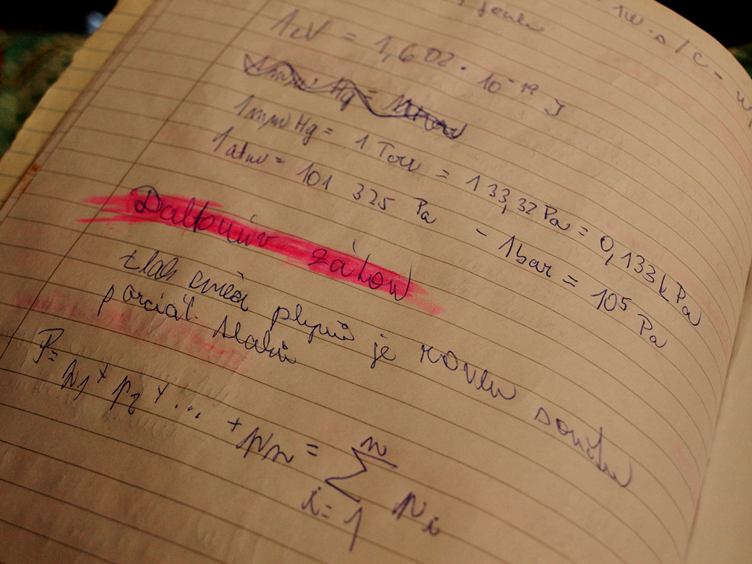 1eV = 1,602 · 10⁻¹⁹ J
1mm Hg = 1 Torr = 133,32 Pa = 0,133 kPa
1atm = 101 325 Pa - 1bar = 10⁵ Pa
Daltonův zákon
tlak směsi plynů je roven součtu
parciál. tlaků
P = p₁ + p₂ + ... + pₙ = ∑ⁿᵢ₌₁ pᵢ